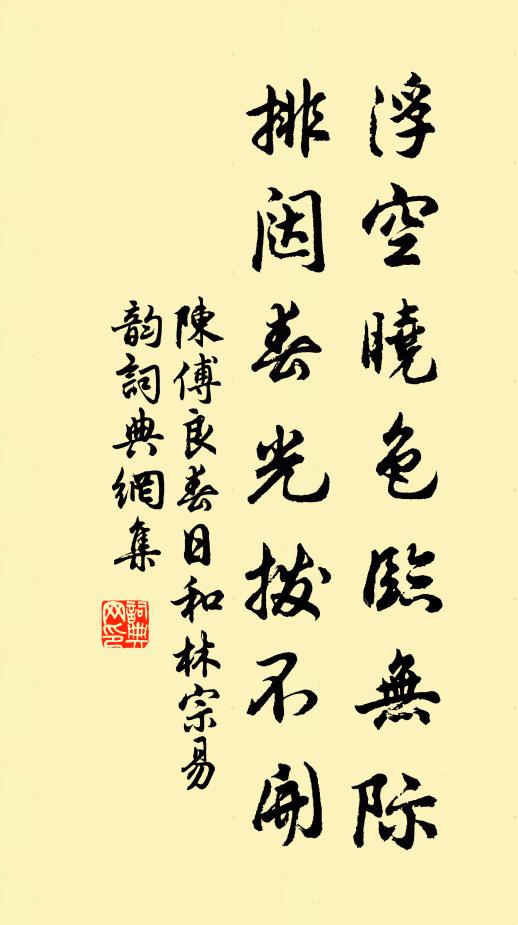 浮空曉色臨無際
排闼春光撥不開
陳傅良春日和林宗易
韵詞典網集
詞典网印